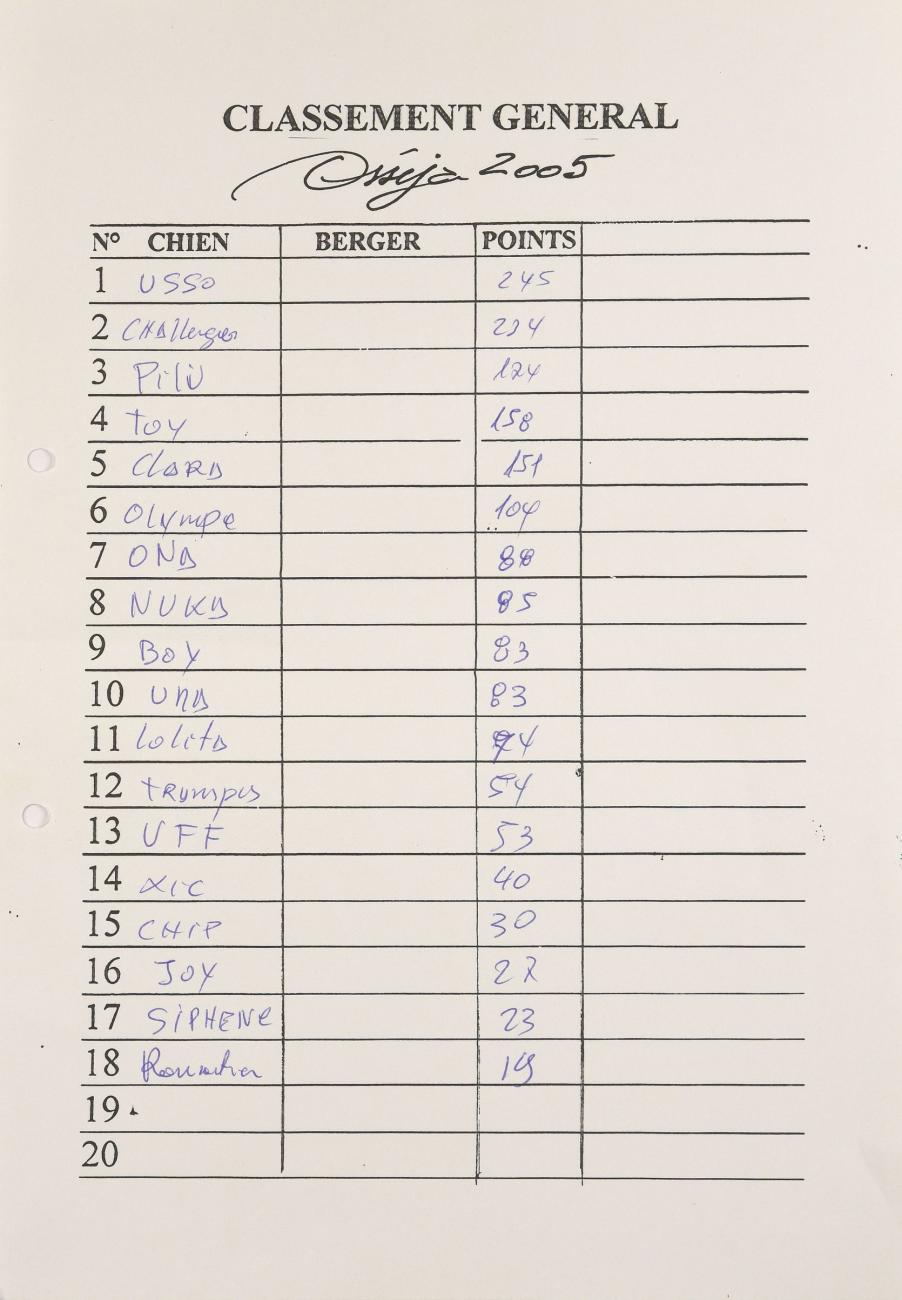 CLASSEMENT GENERAL
Osséja 2005
N° CHIEN BERGER POINTS
1 USSO 245
2 CHAllenger 234
3 PiliU 124
4 toy 158
5 ClARA 151
6 Olympe 104
7 ONA 88
8 NUKA 85
9 Boy 83
10 UnA 83
11 lolitA 74
12 tRumpus 54
13 UFF 53
14 xic 40
15 CHIP 30
16 JOY 27
17 SiPHENe 23
18 19
19
20